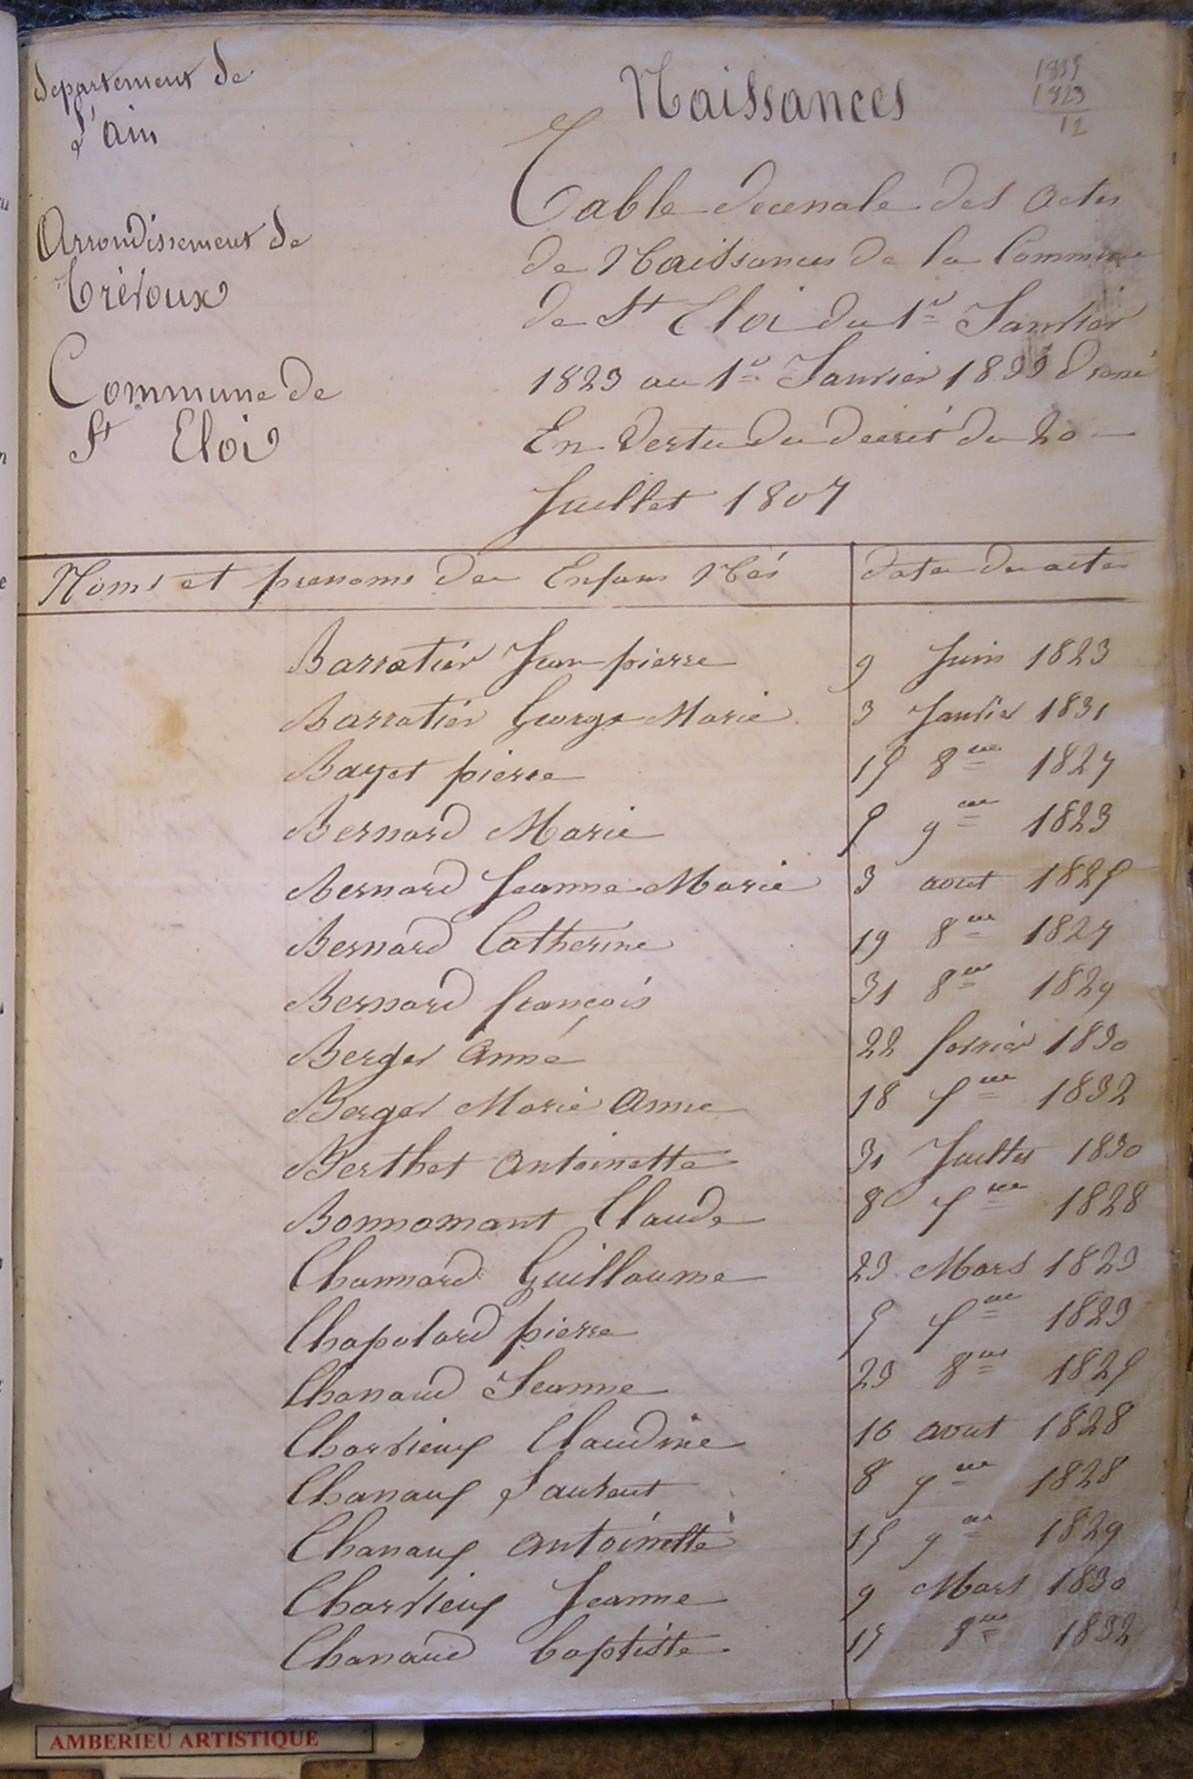 departement de
l'ain
Naissances
1823
12
Table decenale des actes
Arrondissement de
Trévoux
de Naissances de la Commune
de St Eloi du 1er Janvier
Commune de
St Eloi
1823 au 1er Janvier 1833
En vertu du decret du 20
Juillet 1807
Noms et prenoms des Enfans Nés
date des actes
Barratier Jean pierre 9 Juin 1823
Barratier George Marie 3 Janvier 1831
Bayet pierre 15 8bre 1827
Bernard Marie 5 9bre 1823
Bernard Jeanne Marie 3 aout 1825
Bernard Catherine 19 8bre 1827
Bernard françois 31 8bre 1829
Berger Anne 22 fevrier 1830
Berger Marie Anne 18 1832
Berthet Antoinette 31 Juillet 1830
Bonnomant Claude 8 1828
Channard Guillaume 23 Mars 1823
Chapolard pierre 5 1823
Chanaud Jeanne 23 8bre 1825
Charvieux Claudine 16 aout 1828
Chanaux Laurent 8 1828
Chanaux Antoinette 15 9bre 1829
Charvieux Jeanne 9 Mars 1830
Chanaud baptiste 15 8bre 1832
AMBERIEU ARTISTIQUE